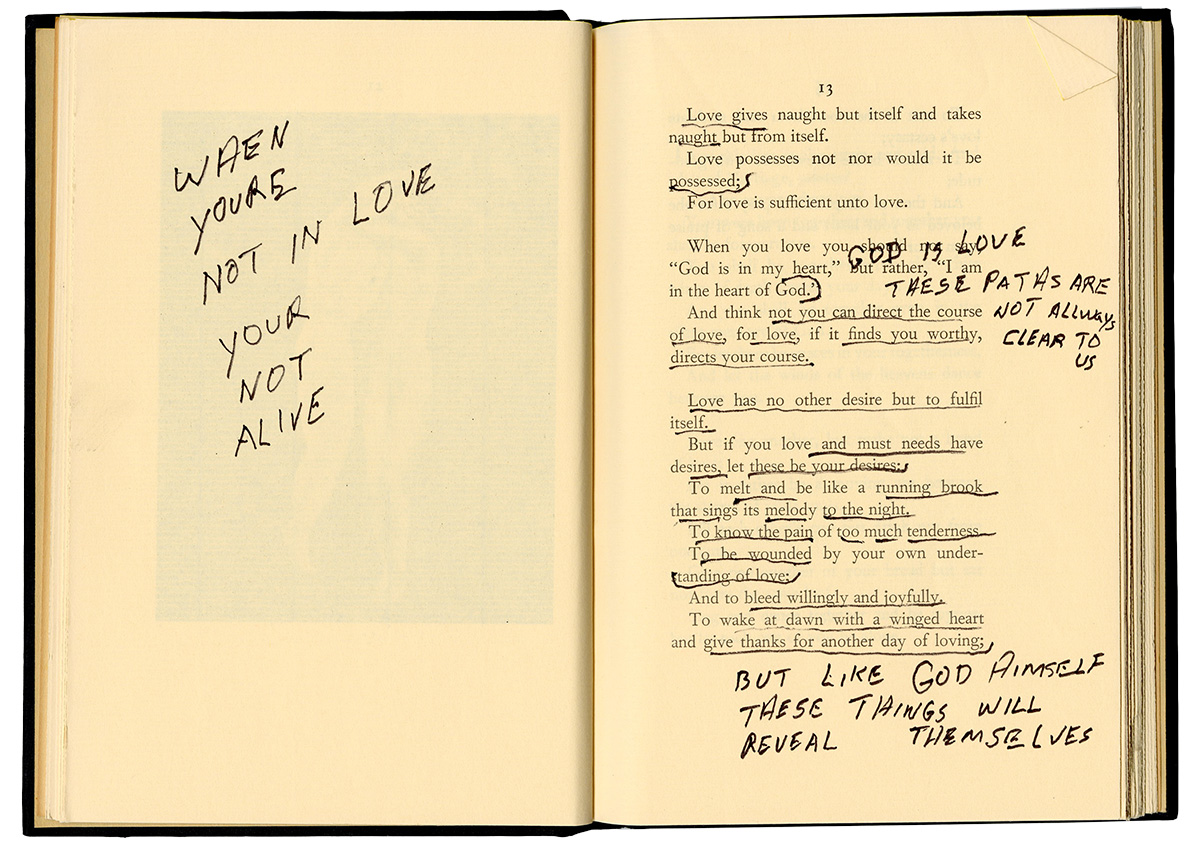 WHEN
YOURE
NOT IN LOVE
YOUR
NOT
ALIVE
13
Love gives naught but itself and takes
naught but from itself.
Love possesses not nor would it be
possessed;
For love is sufficient unto love.
When you love you should not say,
“God is in my heart,” but rather, “I am
in the heart of God.”
And think not you can direct the course
of love, for love, if it finds you worthy,
directs your course.
GOD IS LOVE
THESE PATHS ARE
NOT ALLWAYS
CLEAR TO
US
Love has no other desire but to fulfil
itself.
But if you love and must needs have
desires, let these be your desires:
To melt and be like a running brook
that sings its melody to the night.
To know the pain of too much tenderness.
To be wounded by your own under-
standing of love;
And to bleed willingly and joyfully.
To wake at dawn with a winged heart
and give thanks for another day of loving;
BUT LIKE GOD HIMSELF
THESE THINGS WILL
REVEAL THEMSELVES